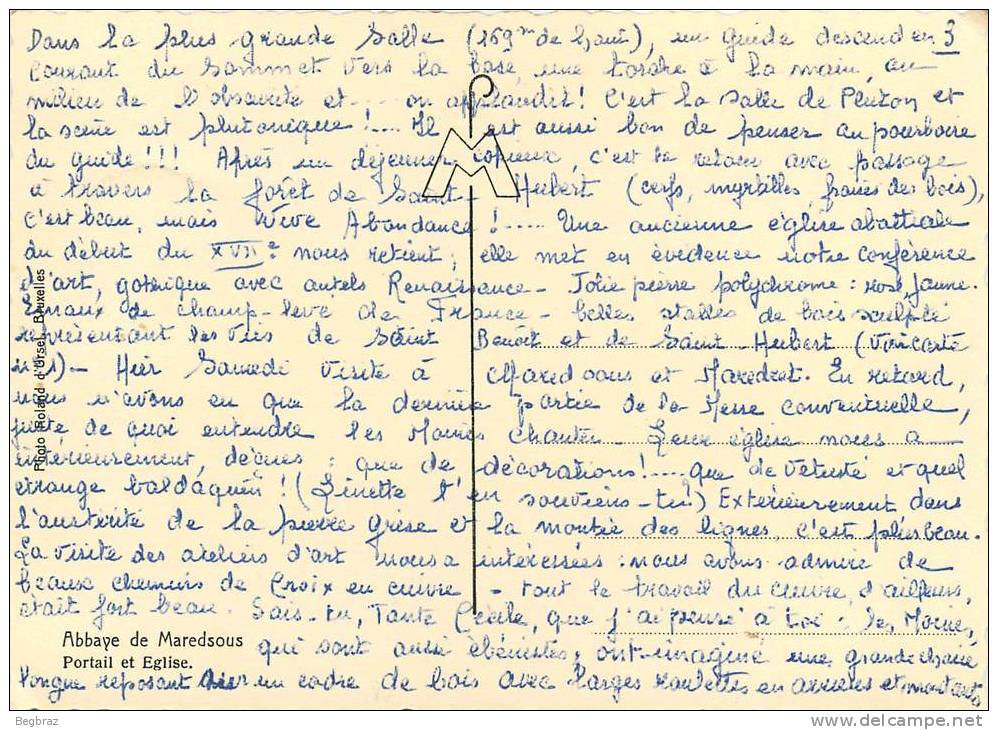 3
Dans la plus grande salle (169m de haut), un guide descend en
courant du sommet vers la base, une torche à la main, au
milieu de l'obscurité et .... on applaudit! C'est la salle de Pluton et
la scène est plutonique !.... Il est aussi bon de penser au pourboire
du guide !!! Après un déjeuner copieux, c'est le retour avec passage
à travers la forêt de Saint-Hubert (cerfs, myrtilles, fraises des bois),
c'est beau, mais vive Abondance !..... Une ancienne église abattiale
du début du XVIIe nous retient; elle met en évidence notre conférence
d'art, gothique avec autels Renaissance - Jolie pierre polychrome: rose, jaune.
Emaux de champ-levé de France - belles stalles de bois sculpté
représentant les vies de Saint Benoît et de Saint-Hubert (voir carte
) - Hier Samedi visite à Maredsous et Maredret. En retard,
nous n'avons eu que la dernière partie de la Messe conventuelle,
juste de quoi entendre les Moines chanter - Leur église nous a
intérieurement, déçues: que de décorations!.... que de vétusté et quel
étrange baldaquin! (Linette t'en souviens-tu?) Extérieurement dans
l'austérité de la pierre grise et la montée des lignes, c'est plus beau.
La visite des ateliers d'art nous a intéressées: nous avons admiré de
beaux chemins de Croix en cuivre - tout le travail du cuivre, d'ailleurs,
était fort beau. Sais-tu, Tante Cécile, que j'ai pensé à toi: les Moines,
qui sont aussi ébénistes, ont imaginé une grande chaise
longue reposant sur un cadre de bois avec larges roulettes en arrière et montants
Abbaye de Maredsous
Portail et Eglise.
Photo Roland d'Ursel Bruxelles
M
Begbraz
www.delcampe.net